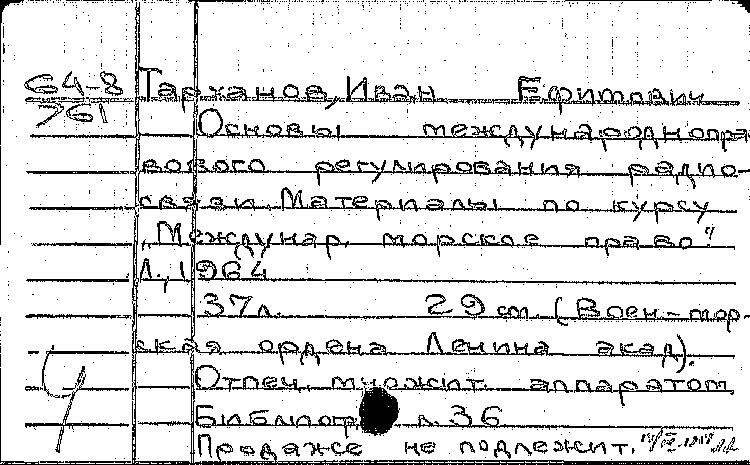 64-8
761
Тарханов, Иван Ефимович
Основы международнопра-
вового регулирования радио-
связи. Материалы по курсу
„Междунар. морское право."
Л., 1964
37 л. 29 см (Воен-мор-
ская ордена Ленина акад).
Отпеч. множит. аппаратом
Библиогр. л. 36
Продаже не подлежит.